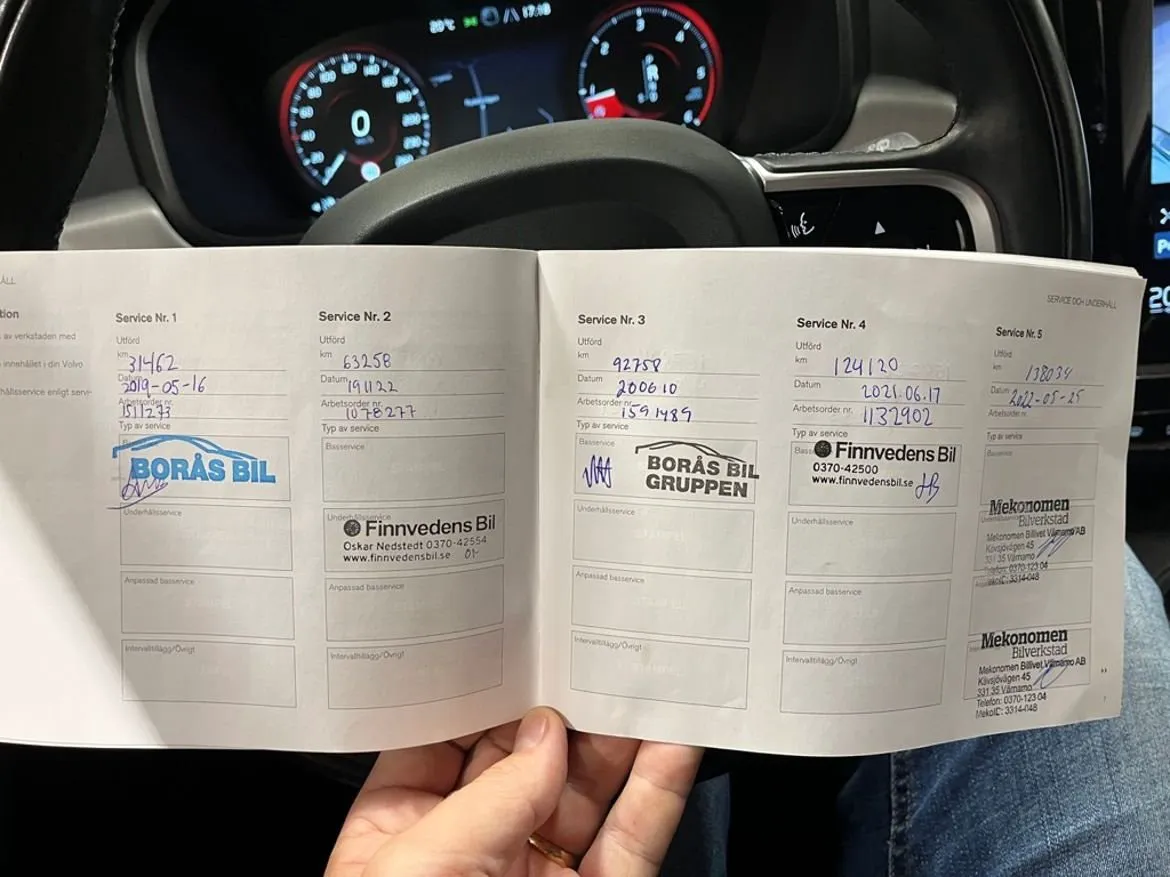 20°C
17:18
0
R
SERVICE OCH UNDERHÅLL
av verkstaden med
innehållet i din Volvo
Service Nr. 1
Utförd
km 31462
Datum 2019-05-16
Arbetsorder nr. 1511273
Typ av service
BORÅS BIL
Underhållsservice
Anpassad basservice
Intervalltillägg/Övrigt
Service Nr. 2
Utförd
km 63258
Datum 191122
Arbetsorder nr. 1078277
Typ av service
Basservice
Underhållsservice
Finnvedens Bil
Oskar Nedstedt 0370-42554
www.finnvedensbil.se
Anpassad basservice
Intervalltillägg/Övrigt
Service Nr. 3
Utförd
km 92758
Datum 200610
Arbetsorder nr. 1591489
Typ av service
Basservice
BORÅS BIL
GRUPPEN
Underhållsservice
Anpassad basservice
Intervalltillägg/Övrigt
Service Nr. 4
Utförd
km 124120
Datum 2021.06.17
Arbetsorder nr. 1132902
Typ av service
Finnvedens Bil
0370-42500
www.finnvedensbil.se
Underhållsservice
Anpassad basservice
Intervalltillägg/Övrigt
Service Nr. 5
Utförd
km 138034
Datum 2022-05-25
Arbetsorder nr.
Typ av service
Basservice
Mekonomen
Bilverkstad
Mekonomen Billivet Värnamo AB
Kävsjövägen 45
331 35 Värnamo
Telefon: 0370-123 04
MekoID: 3314-048
Mekonomen
Bilverkstad
Mekonomen Billivet Värnamo AB
Kävsjövägen 45
331 35 Värnamo
Telefon: 0370-123 04
MekoID: 3314-048